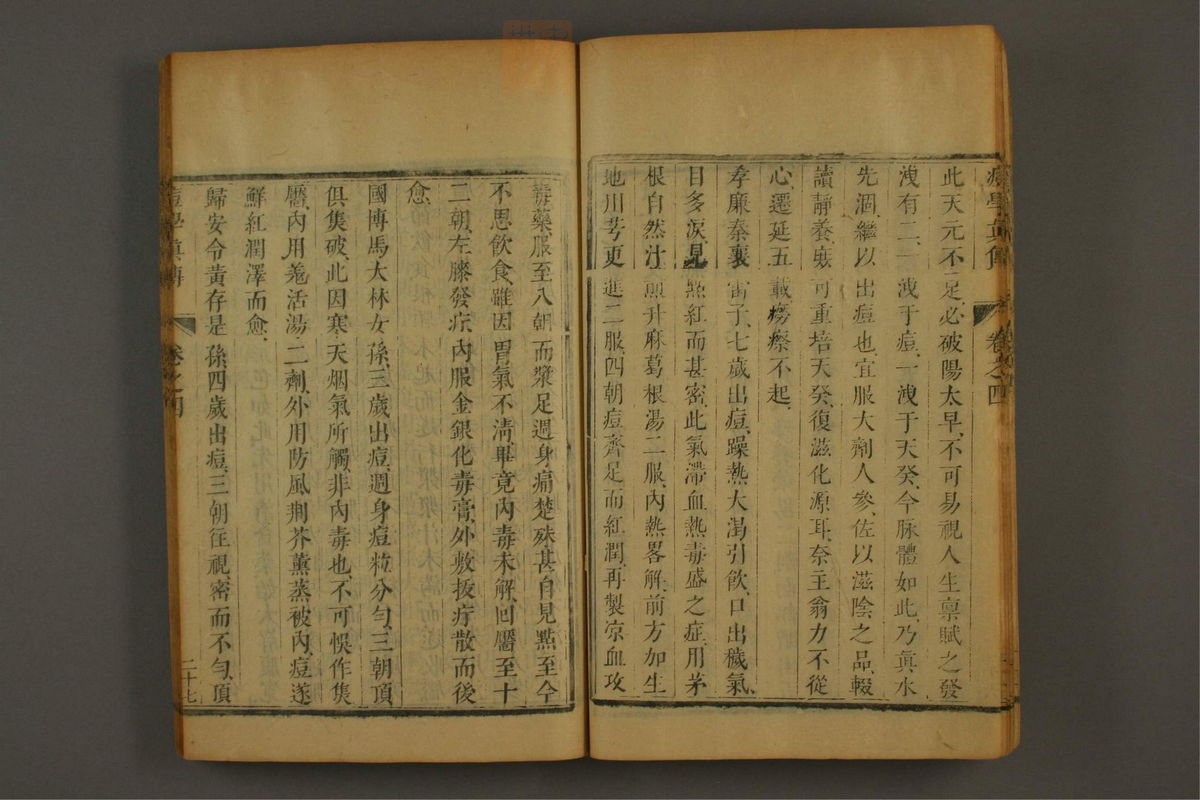 此天元不足必破陽太早不可易視人生稟賦之發
洩有二一洩于痘一洩于天癸今脉體如此乃眞水
先涸繼以出痘也宜服大劑人參佐以滋陰之品輟
讀靜養庻可重培天癸復滋化源耳奈主翁力不從
心遷延五載癆瘵不起
孝廉秦襄雷子七歲出痘躁熱大渴引飲口出穢氣
目多淚見㸃紅而甚密此氣滯血熱毒盛之症用茅
根自然汁煎升麻葛根湯二服内熱畧解前方加生
地川芎更進二服四朝痘齊足而紅潤再製凉血攻
毒藥服至八朝而漿足週身痛楚殊甚自見㸃至今
不思飲食雖因胃氣不清畢竟内毒未解回靨至十
二朝左膝發疔内服金銀化毒膏外敷拔疔散而後
愈
國博馬大林女孫三歲出痘週身痘粒分勻三朝頂
俱集破此因寒天烟氣所觸非内毒也不可悞作集
靨内用羗活湯二劑外用防風荆芥薰蒸被内痘遂
鮮紅潤澤而愈
歸安令黄存是孫四歲出痘三朝徃視密而不勻頂
痘學眞傳
卷之四
二十七